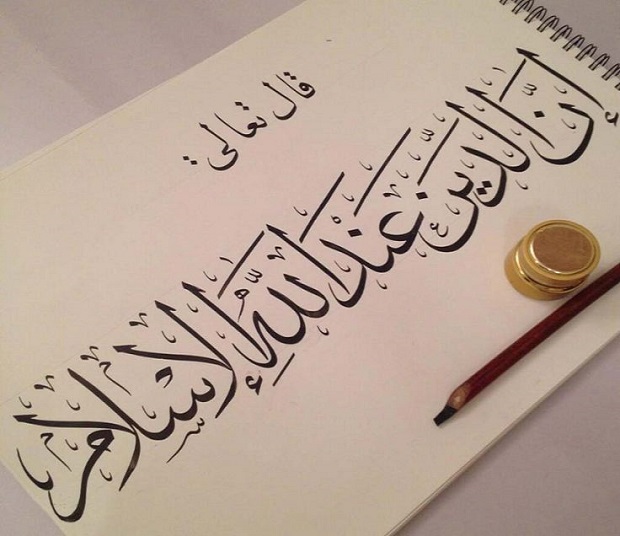 قال تعالى :
إنَّ الدين عند اللّٰهِ الإسلام